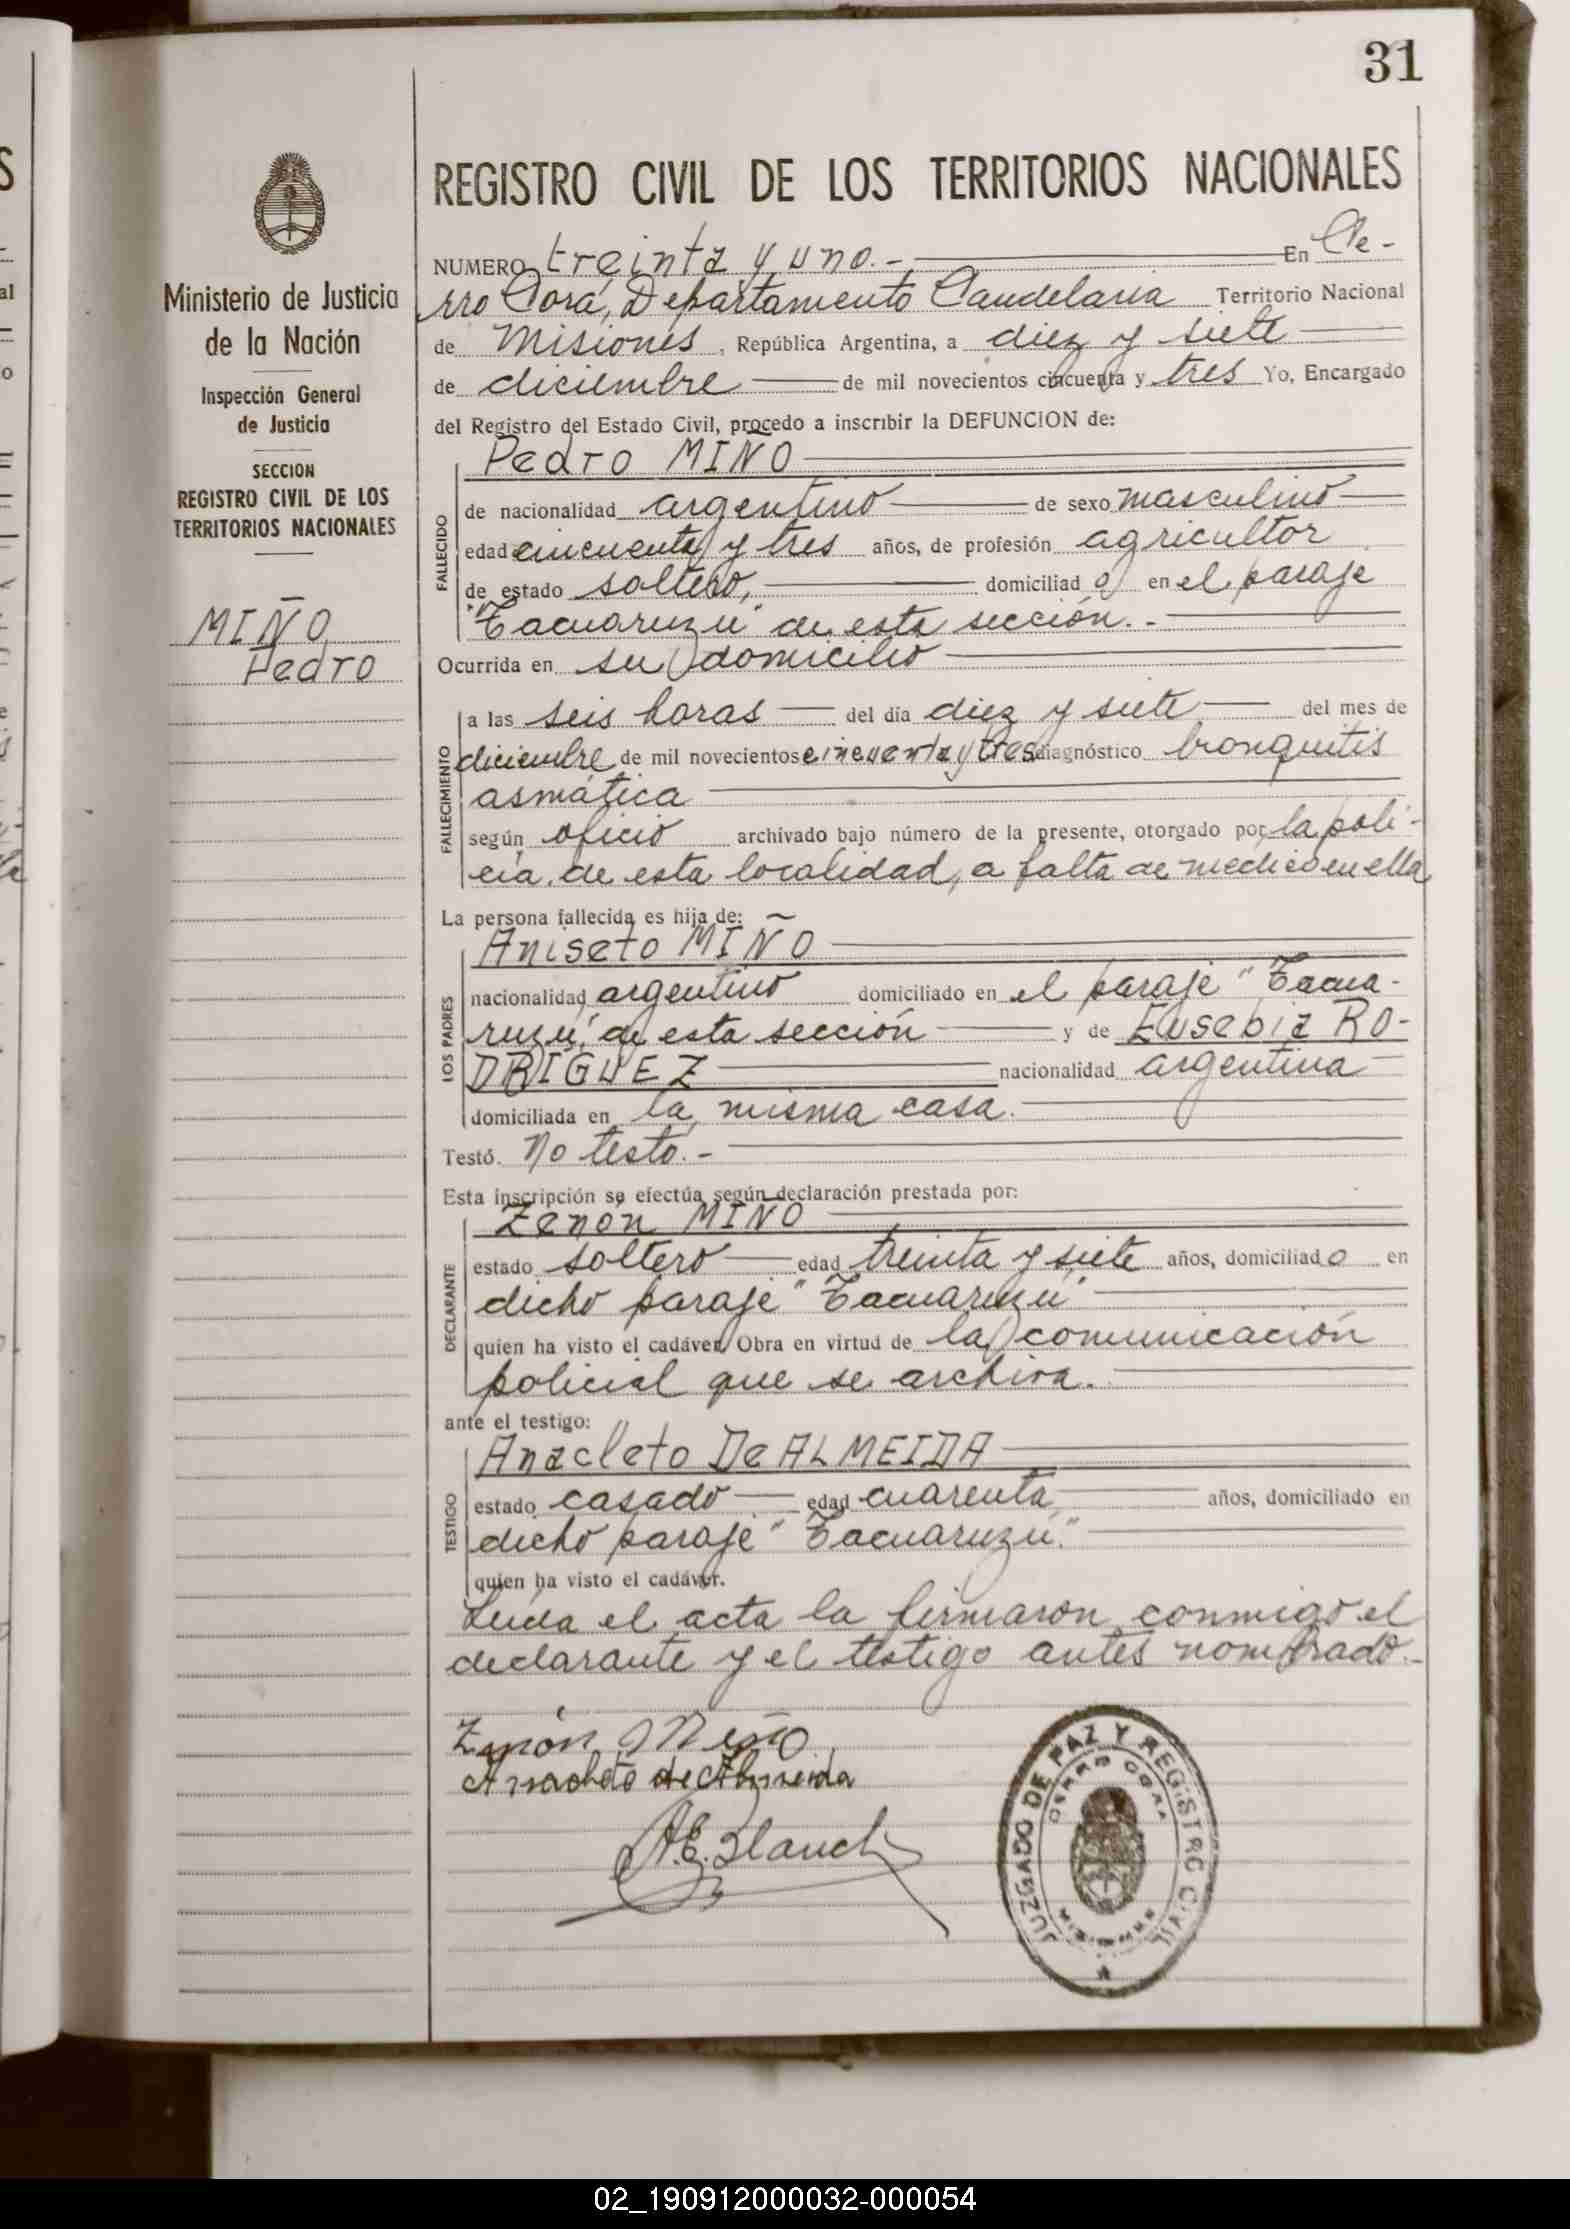 31
REGISTRO CIVIL DE LOS TERRITORIOS NACIONALES
Ministerio de Justicia
de la Nación
Inspección General
de Justicia
SECCION
REGISTRO CIVIL DE LOS
TERRITORIOS NACIONALES
MIÑO
Pedro
NUMERO treinta y uno.- En Ce-
rro Corá, Departamento Candelaria Territorio Nacional
de Misiones, República Argentina, a diez y siete
de diciembre de mil novecientos cincuenta y tres Yo, Encargado
del Registro del Estado Civil, procedo a inscribir la DEFUNCION de:
Pedro MIÑO
FALLECIDO
de nacionalidad argentino de sexo masculino
edad cincuenta y tres años, de profesión agricultor
de estado soltero, domiciliado en el paraje
"Tacuaruzú" de esta sección.-
Ocurrida en su domicilio
FALLECIMIENTO
a las seis horas del día diez y siete del mes de
diciembre de mil novecientos cincuenta y tres diagnóstico bronquitis
asmática
según oficio archivado bajo número de la presente, otorgado por la poli-
cía de esta localidad, a falta de medico en ella
La persona fallecida es hija de:
Aniseto MIÑO
LOS PADRES
nacionalidad argentino domiciliado en el paraje "Tacua-
ruzú" de esta sección y de Eusebia RO-
DRIGUEZ nacionalidad argentina
domiciliada en la misma casa.
Testó. No testó.-
Esta inscripción se efectúa según declaración prestada por:
Zenón MIÑO
DECLARANTE
estado soltero edad treinta y siete años, domiciliado en
dicho paraje "Tacuaruzú"
quien ha visto el cadáver. Obra en virtud de la comunicación
policial que se archiva.
ante el testigo:
Anacleto De ALMEIDA
TESTIGO
estado casado edad cuarenta años, domiciliado en
dicho paraje "Tacuaruzú."
quien ha visto el cadáver.
Leída el acta la firmaron conmigo el
declarante y el testigo antes nombrado.-
Zenón Miño
Anacleto de Almeida
A.E. Blanch
JUZGADO DE PAZ Y REGISTRO CIVIL
CERRO CORA
MISIONES
02_190912000032-000054